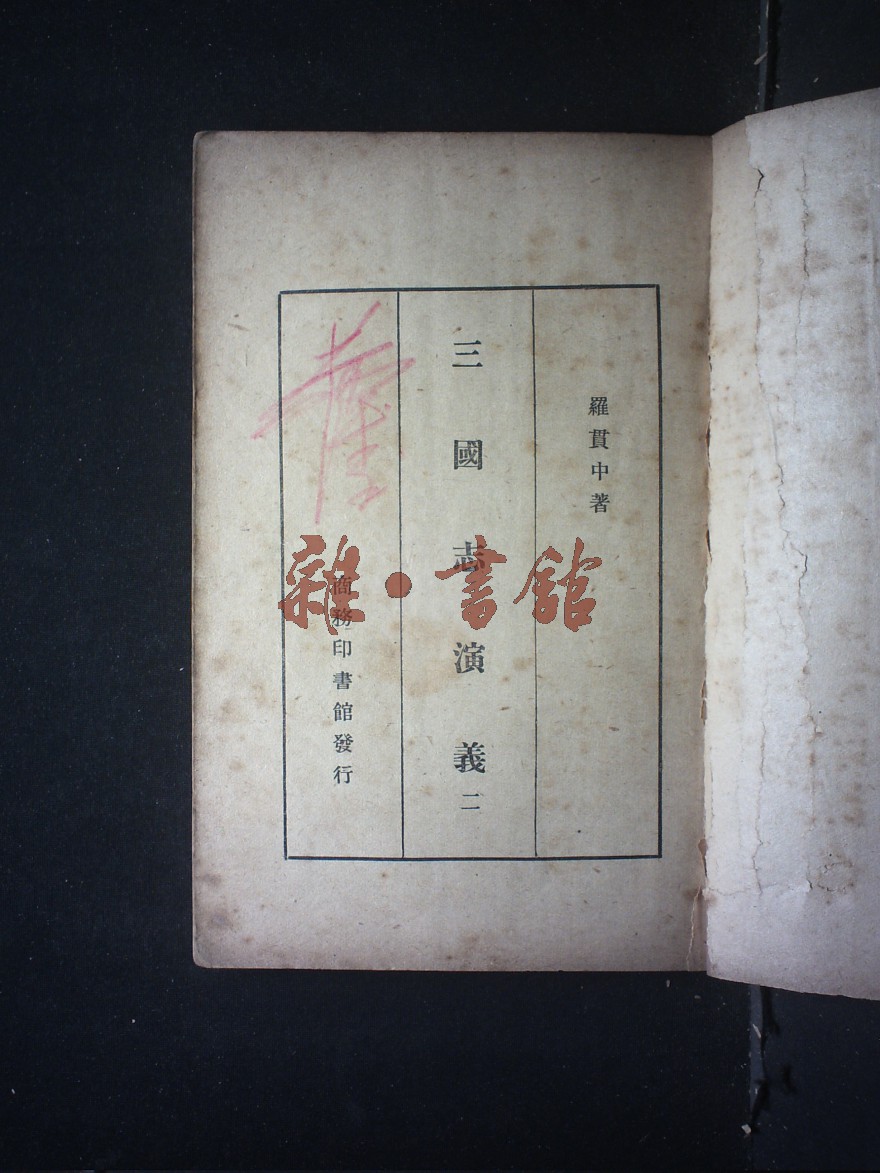 羅貫中著
三國志演義二
商務印書館發行
雜·書館